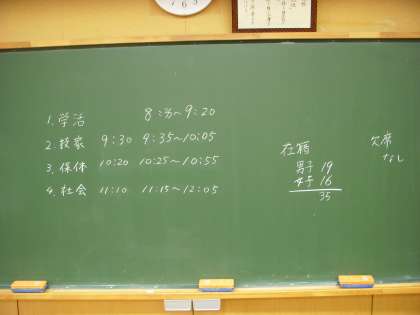 1. 学活 8:35〜9:20
2. 技家 9:30 9:35〜10:05
3. 保体 10:20 10:25〜10:55
4. 社会 11:10 11:15〜12:05
在籍
男子 19
女子 16
35
欠席
なし